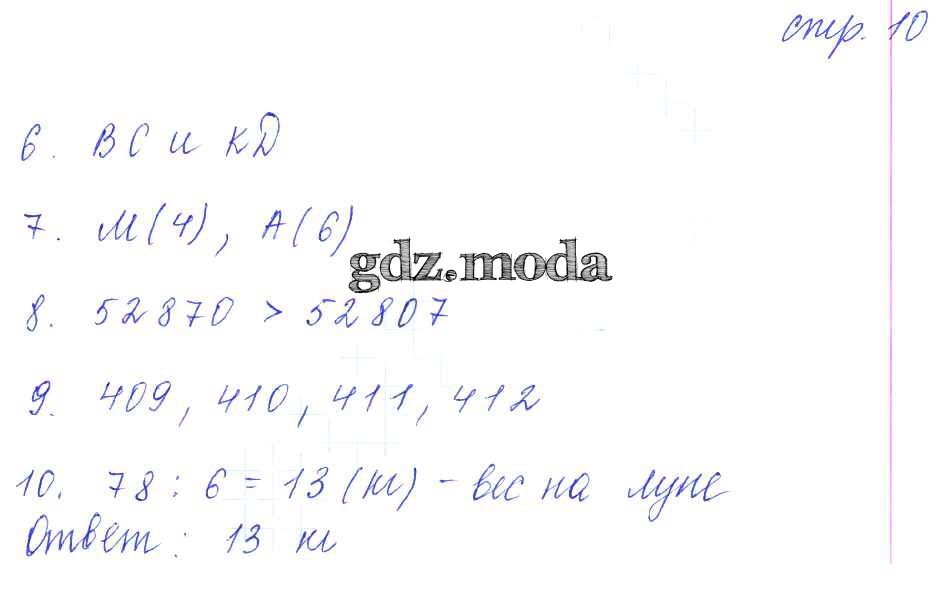 стр. 10
6. ВС и КД
7. М(4), А(6)
gdz.moda
8. 52870 > 52807
9. 409, 410, 411, 412
10. 78 : 6 = 13 (кг) - вес на луне
Ответ: 13 кг